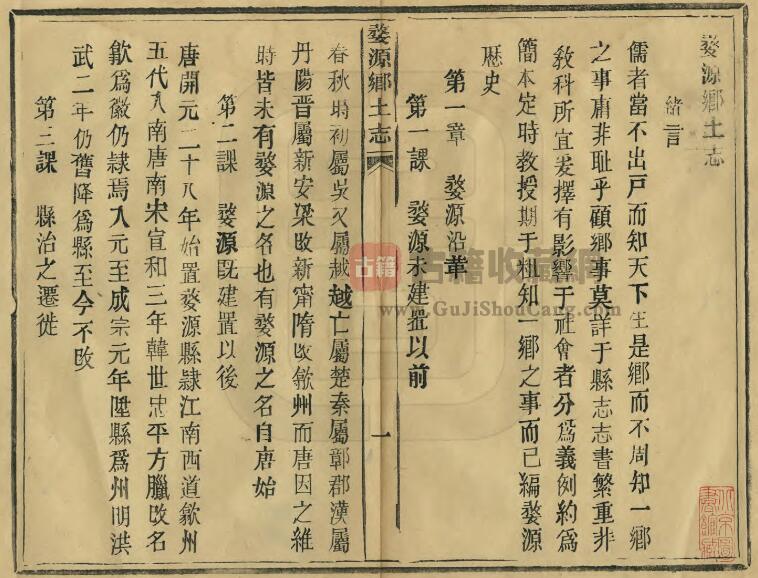 婺源鄉土志
緒言
儒者當不出戸而知天下生是鄉而不周知一鄉
之事庸非恥乎顧鄉事莫詳于縣志志書繁重非
敎科所宜爰擇有影響于社會者分爲義例約爲
簡本定時教授期于粗知一鄉之事而已編婺源
歷史
第一章 婺源沿革
第一課 婺源未建置以前
婺源鄉土志
一
春秋時初屬吳又屬越越亡屬楚秦屬鄣郡漢屬
丹陽晉屬新安梁改新甯隋改歙州而唐因之維
時皆未有婺源之名也有婺源之名自唐始
第二課 婺源旣建置以後
唐開元二十八年始置婺源縣隷江南西道歙州
五代入南唐南宋宣和三年韓世忠平方臘改名
歙爲徽仍隷焉入元至成宗元年陞縣爲州明洪
武二年仍舊降爲縣至今不改
第三課 縣治之遷徙
古籍
古籍收藏网
www.GuJiShouCang.com